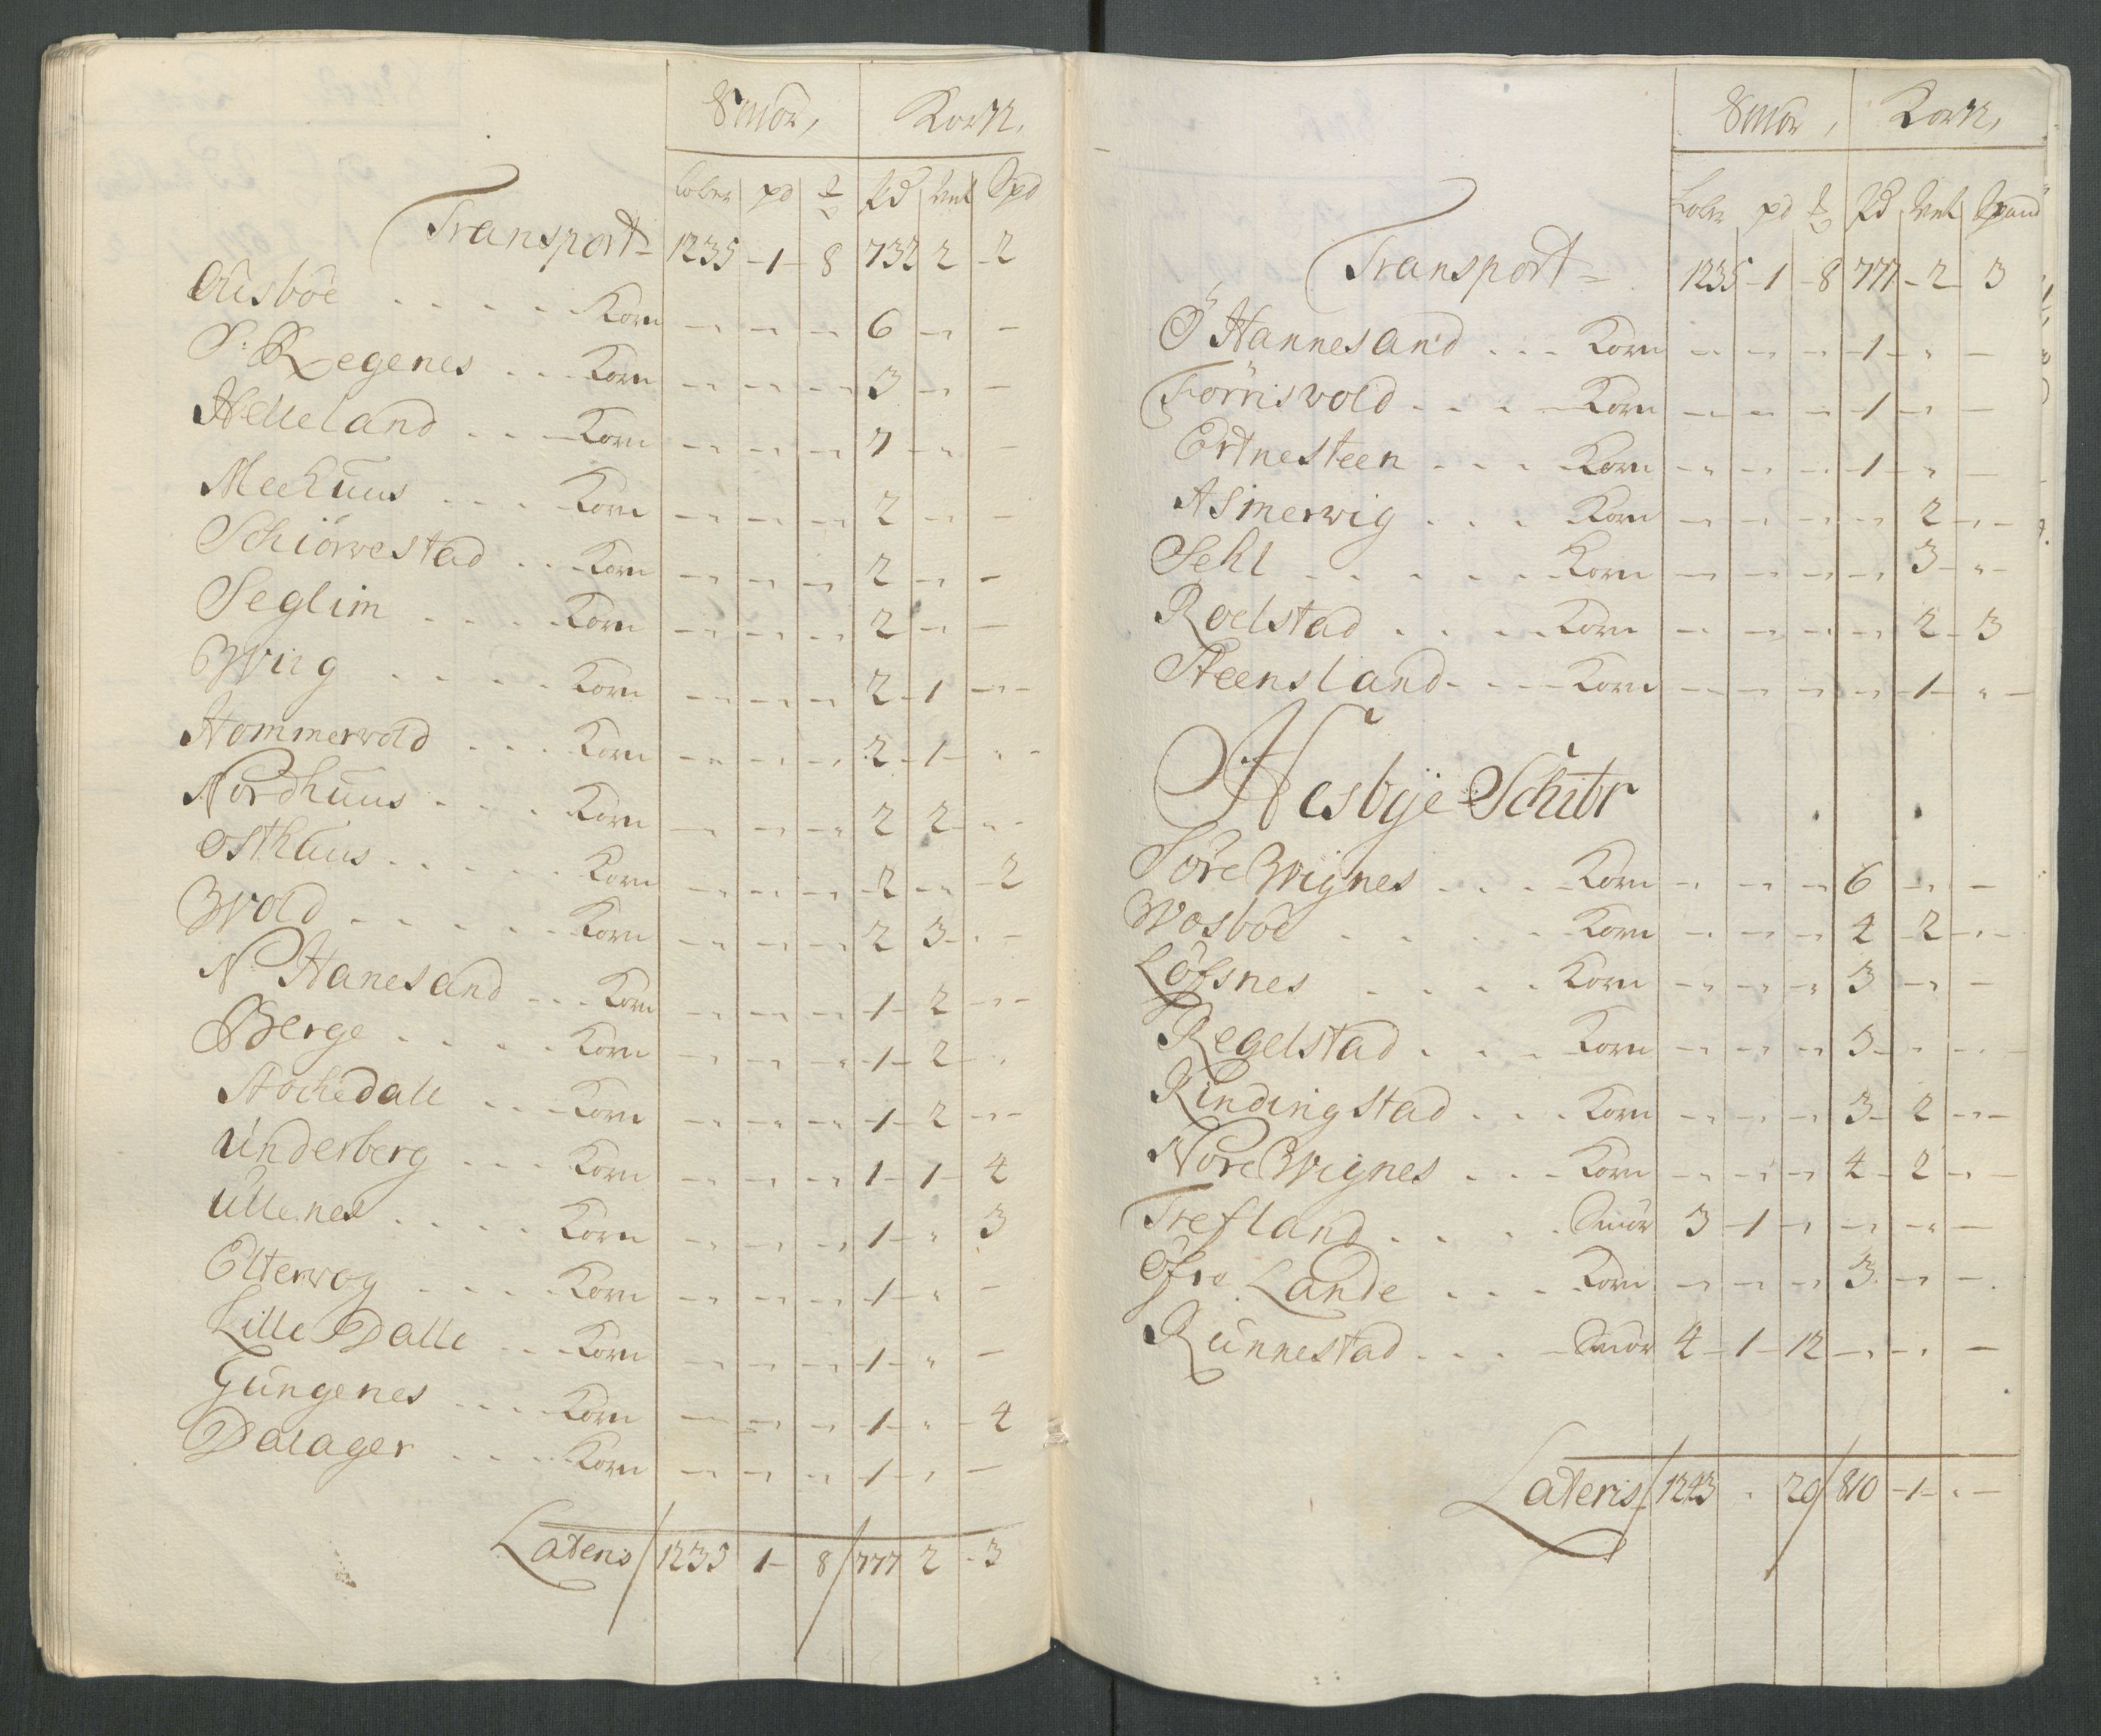 Smör, Korn,
Løber pd ℔ Pd Vet Spd
Transport 1235 - 1 - 8 732 2 - 2
Ausböe . . . . Korn - - - 6 - -
S: Regenes . . Korn - - - 3 - -
Helleland . . Korn - - - 7 - -
Meehuus . . . Korn - - - 2 - -
Schiörvestad . . Korn - - - 2 - -
Seglim . . . . Korn - - - 2 - -
Wiig . . . . Korn - - - 2 - 1 -
Hommervold . . . Korn - - - 2 - 1 -
Nordhuus . . . Korn - - - 2 2 -
Osthuus . . . . Korn - - - 2 - - 2
Wold . . . . . Korn - - - 2 3 -
N: Hanesand . . . Korn - - - 1 - 2 -
Berge . . . . Korn - - - 1 - 2 -
Stochedall . . . Korn - - - 1 - 2 -
Underberg . . . Korn - - - 1 - 1 - 4
Ullenes . . . . Korn - - - 1 - - 3
Eltervog . . . . Korn - - - 1 - -
Lille Dalle . . Korn - - - 1 - -
Gungenes . . . Korn - - - 1 - - 4
Dalager . . . Korn - - - 1 - -
Lateris 1235 1 - 8 777 2 - 3
Smör, Korn,
Løber pd ℔ Pd Vet Spand
Transport 1235 - 1 - 8 777 - 2 - 3
Ö Hannesand . . . Korn - - - 1 - -
Förrisvold . . . Korn - - - 1 - -
Ertnesteen . . . Korn - - - 1 - -
Asmervig . . . Korn - - - - 2 -
Sehl . . . . . Korn - - - - 3 -
Roelstad . . . . Korn - - - - 2 - 3
Steensland . . . Korn - - - - 1 -
Hesbÿe Schibr
Söre Wignes . . . Korn - - - 6 - -
Wosböe . . . . Korn - - - 4 2 -
Löfsnes . . . . Korn - - - 3 - -
Regelstad . . . Korn - - - 5 - -
Rindingstad . . . Korn - - - 3 - 2 -
Nore Wignes . . . Korn - - - 4 - 2 -
Trefland . . . . Smör 3 - 1 - - - -
Öfre Lande . . . Korn - - - 3 - -
Runnestad . . . Smör 4 - 1 - 12 - - -
Lateris 1243 - 20 810 - 1 - -